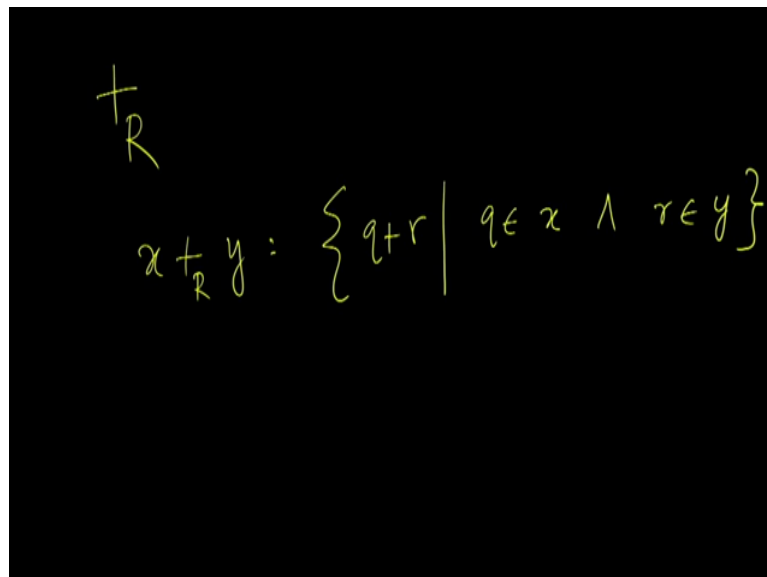 +R
x +R y : {q+r | q ∈ x ∧ r ∈ y}